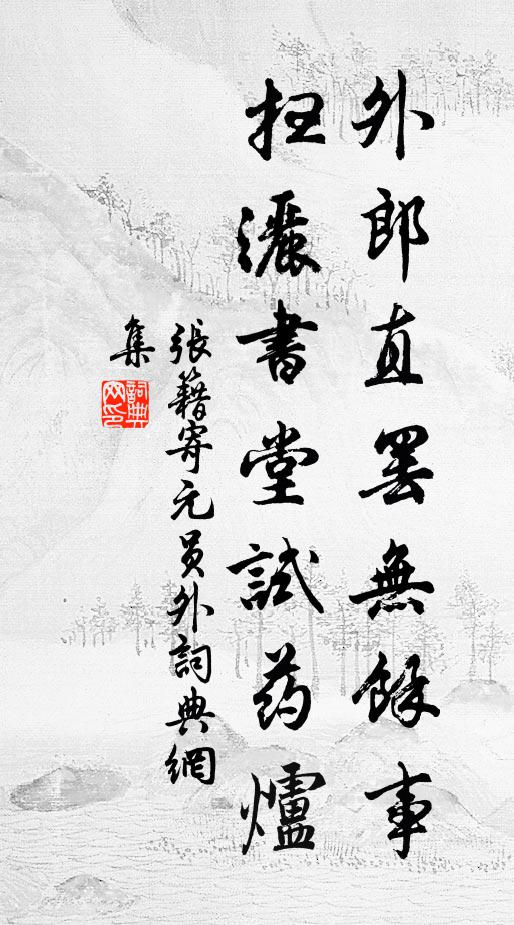 外郎直罢無餘事
扫灑書堂試药爐
張籍寄元員外詞典網
集
詞典網印